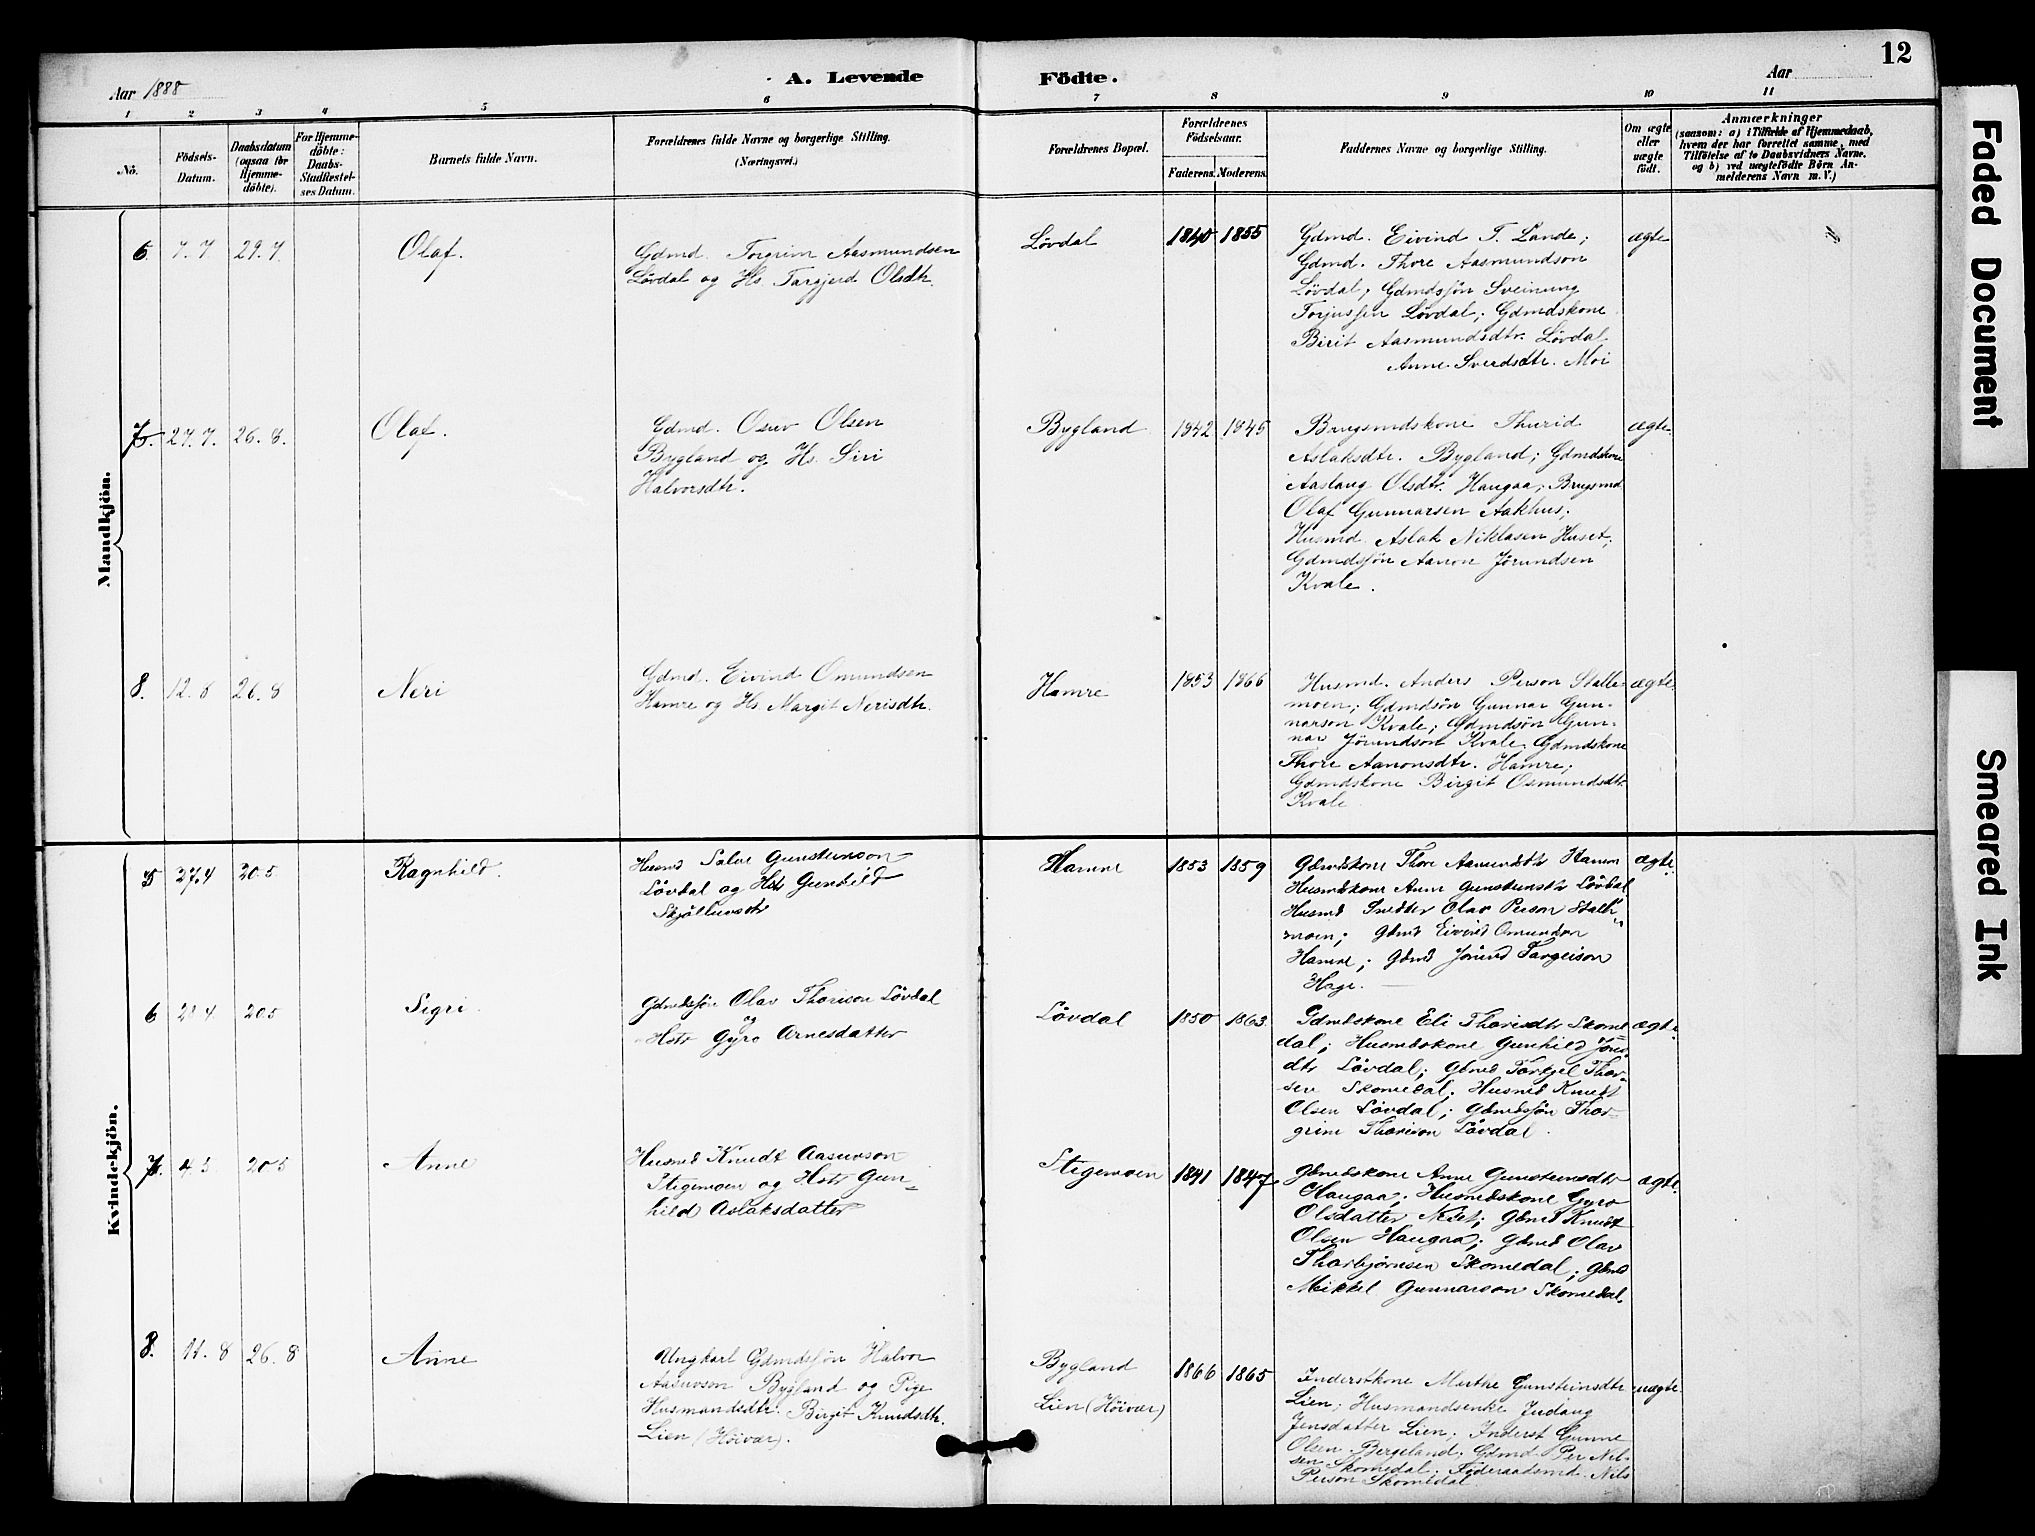 12
Aar 1888
A. Levende Födte.
Aar
1 2 3 4 5 6 7 8 9 10 11
No.
Födsels-Datum.
Daabsdatum (ogsaa for Hjemmedöbte).
For Hjemmedöbte: Daabs-Stadfæstelses Datum.
Barnets fulde Navn.
Forældrenes fulde Navne og borgerlige Stilling.
(Næringsvei.)
Forældrenes Bopæl.
Forældrenes Födselsaar.
Faderens. Moderens.
Faddernes Navne og borgerlige Stilling.
Om ægte eller uægte födt.
Anmærkninger
(saasom: a) i Tilfælde af Hjemmedaab,
hvem der har forrettet samme, med
Tilföielse af to Daabsvidners Navne.
og b) ved uægtefödte Börn An-
melderens Navn m. V.)
Mandkjön.
6. 7.7 29.7. Olaf.
Gdmd. Torgrim Aasmundsen
Lövdal og Hs. Targjerd Olsdtr.
Lövdal 1840 1855
Gdmd. Eivind T. Lande;
Gdmd. Thore Aasmundson
Lövdal; Gdmdsjön Sveinung
Torjussen Lövdal; Gdmdskone
Birit Aasmundsdtr. Lövdal
Anne Sverdsdtr. Moi
ægte
7. 27.7. 26.8. Olaf.
Gdmd. Osuv Olsen
Bygland og Hs. Siri
Halvorsdtr.
Bygland 1842 1845
Brugsmdskone Thurid
Aslaksdtr. Bygland; Gdmdskone
Aaslaug Olsdtr. Haugaa; Brugsmd
Olaf Gunnarsen Aakhus;
Husmd. Aslak Niklasen Huset;
Gdmdsjön Aanon Jörundsen
Kvale.
ægte
8. 12.8 26.8 Neri
Gdmd. Eivind Omundsen
Hamre og Hs. Margit Nerisdtr.
Hamre 1853 1866
Husmd. Anders Person Stalle-
moen; Gdmdsön Gunnar Gun-
narson Kvale; Gdmdsön Gun-
nar Jörundson Kvale; Gdmdskone
Thore Aanonsdtr. Hamre;
Gdmdskone Birgit Osmundsdtr.
Kvale
ægte
Kvindekjön.
5 27.4 20.5 Ragnhild.
Husmd Salve Gunsteinson
Lövdal og Hstr Gunhild
Skjöllumsdtr
Hamre 1853 1859
Gdmdskone Thore Aanundsdtr Hamre
Husmdskone Anne Gunsteinsdtr Lövdal
Husmd Snedker Olav Person Stalle-
moen; Gdmd Eivind Omundson
Hamre; Gdmd Jörund Targeison
Hage.
ægte
6 20.5 Sigri.
Gdmdssön Olav Thorison Lövdal
og
Hstr Gyro Arnesdatter
Lövdal 1850 1863
Gdmdskone Eli Thorisdtr Skome-
dal; Husmdskone Gunhild Jöns-
dtr Lövdal; Gdmd Torkjel Thor-
sen Skomedal; Husmd Knudt
Olsen Lövdal; Gdmdssön Thor-
grim Thorison Lövdal.
ægte
7. 4.5 20.5 Anne
Husmd Knudt Aasuvson
Stigemoen og Hstr Gun-
hild Aslaksdatter
Stigemoen 1841 1847
Gdmdskone Anne Gunsteinsdtr
Haugaa; Husmdskone Gyro
Olsdatter Neset; Gdmd Knudt
Olsen Haugaa; Gdmd Olav
Thorbjörnsen Skomedal; Gdmd
Mikkel Gunnarson Skomedal.
ægte
8. 11.8 26.8 Anne
Ungkarl Gdmdsjön Halvor
Aasuvson Bygland og Pige
Husmandsdtr. Birgit Knudsdtr.
Lien (Höivær).
Bygland
Lien (Höivær)
1866 1865
Inderstkone Marthe Gunsteinsdtr.
Lien; Husmandsenke Judang
Jensdatter Lien; Inderst Gunne
Olsen Bergeland; Gdmd. Per Nil-
sen Skomedal; Föderaadsmd. Nils
Person Skomedal
uægte
Faded Document
Smeared Ink